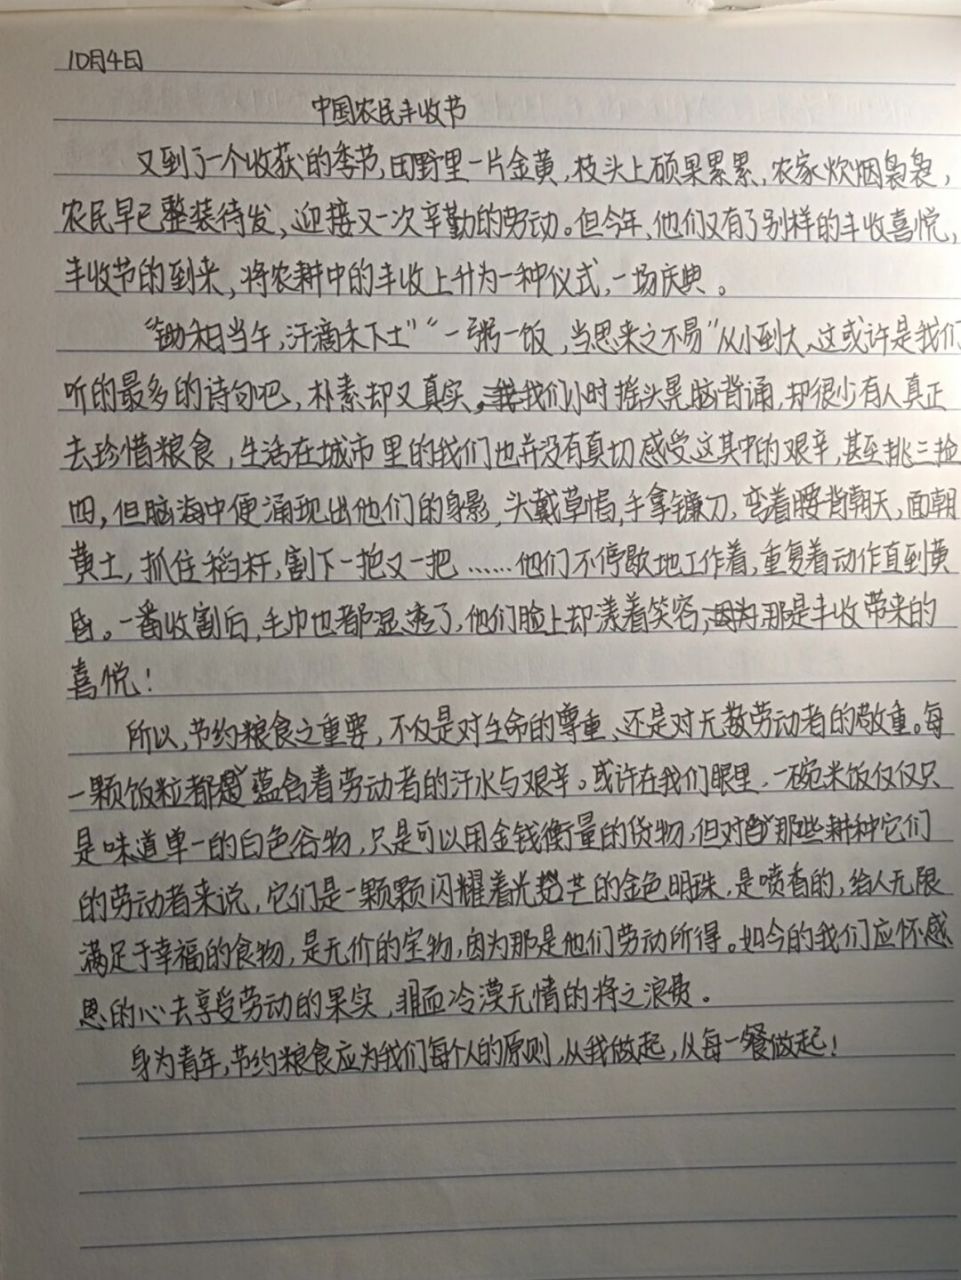 10月4日
中国农民丰收节
又到了一个收获的季节,田野里一片金黄,枝头上硕果累累,农家炊烟袅袅,
农民早已整装待发,迎接又一次辛勤的劳动。但今年,他们又有了别样的丰收喜悦,
丰收节的到来,将农耕中的丰收上升为一种仪式,一场庆典。
“锄禾日当午,汗滴禾下土”“一粥一饭,当思来之不易”从小到大,这或许是我们
听的最多的诗句吧,朴素却又真实,我们小时摇头晃脑背诵,却很少有人真正
去珍惜粮食,生活在城市里的我们也并没有真切感受这其中的艰辛,甚至挑三捡
四,但脑海中便涌现出他们的身影,头戴草帽,手拿镰刀,弯着腰背朝天,面朝
黄土,抓住稻杆,割下一把又一把……他们不停歇地工作着,重复着动作直到黄
昏。一番收割后,毛巾也都湿透了,他们脸上却漾着笑容,因为那是丰收带来的
喜悦!
所以,节约粮食之重要,不仅是对生命的尊重、还是对无数劳动者的敬重。每
一颗饭粒都蕴含着劳动者的汗水与艰辛。或许在我们眼里,一碗米饭仅仅只
是味道单一的白色谷物,只是可以用金钱衡量的货物,但对那些耕种它们
的劳动者来说,它们是一颗颗闪耀着光芒的金色明珠,是喷香的,给人无限
满足于幸福的食物,是无价的宝物,因为那是他们劳动所得。如今的我们应怀感
恩的心去享受劳动的果实,非而冷漠无情的将之浪费。
身为青年,节约粮食应为我们每个人的原则,从我做起,从每一餐做起!